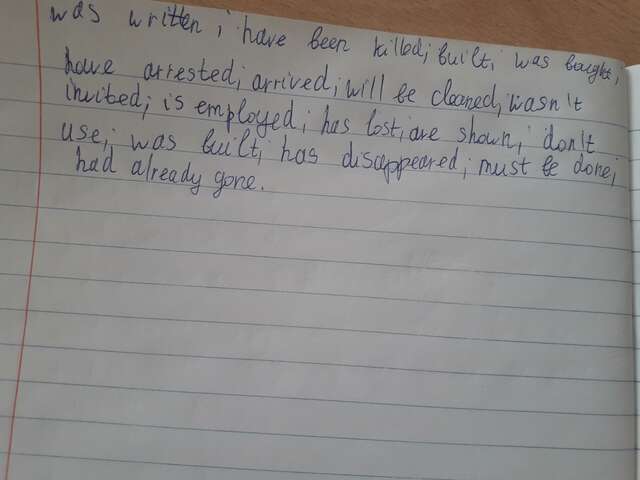 was written; have been killed; built; was bought;
have arrested; arrived; will be cleaned; wasn't
invited; is employed; has lost; are shown; don't
use; was built; has disappeared; must be done;
had already gone.